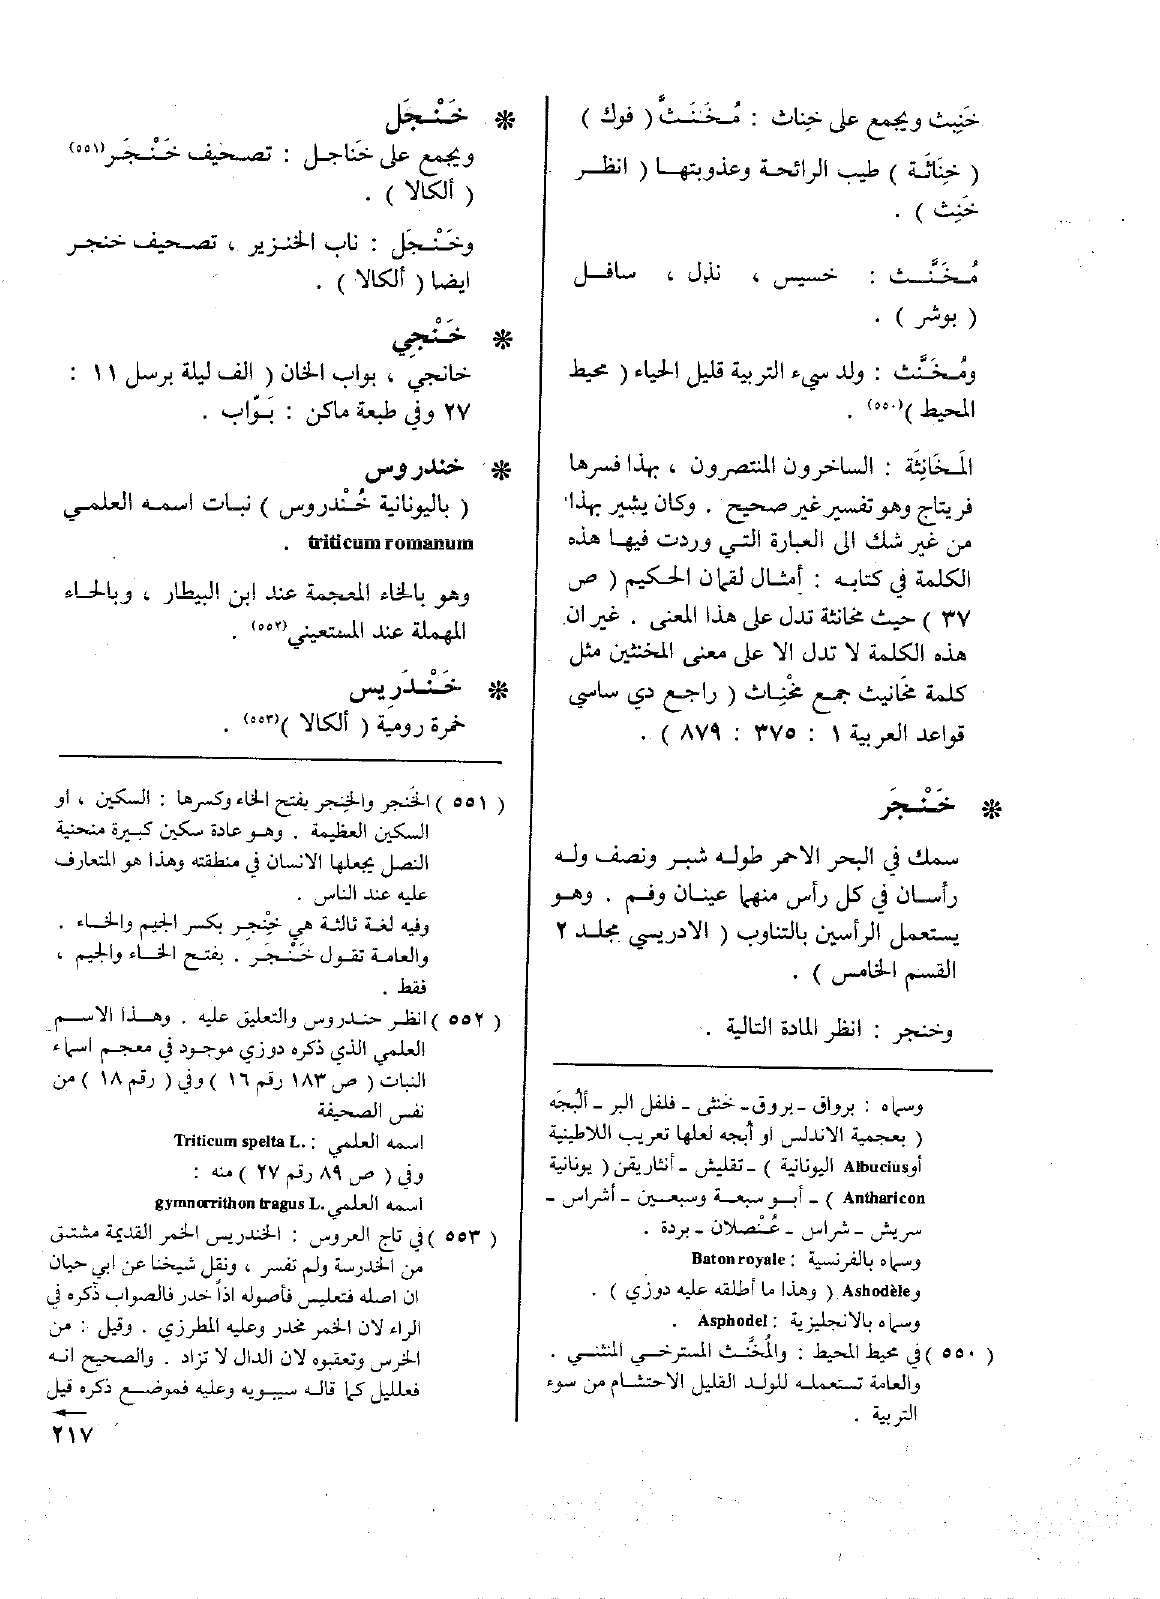 خَنِيث ويجمع على خِناث : مُخَنَثٌ ( فوك )
( خِنَاثَة ) طيب الرائحة وعذوبتها ( انظر
خَنِث ) .
مُخَنَّث : خسيس ، نذل ، سافل
( بوشر ) .
ومُخَنَّث : ولد سيء التربية قليل الحياء ( محيط
المحيط )(٥٥٠) .
المَخَانِثَة : الساخرون المنتصرون ، بهذا فسرها
فريتاج وهو تفسير غير صحيح . وكان يشير بهذا
من غير شك الى العبارة التي وردت فيها هذه
الكلمة في كتابه : أمثال لقمان الحكيم ( ص
٣٧ ) حيث مخانثة تدل على هذا المعنى . غير ان
هذه الكلمة لا تدل الا على معنى المخنثين مثل
كلمة مَخَانيث جمع مِخْنِاث ( راجع دي ساسي
قواعد العربية ١ : ٣٧٥ : ٨٧٩ ) .
❋ خَنْجَر
سمك في البحر الاحمر طوله شبر ونصف وله
رأسان في كل رأس منهما عينان وفم . وهو
يستعمل الرأسين بالتناوب ( الادريسي مجلد ٢
القسم الخامس ) .
وخنجر : انظر المادة التالية .
وسماه : برواق - بروق - خنثى - فلفل البر - ألْبجَه
( بعجمية الاندلس او أبجه لعلها تعريب اللاطينية
أو Albucius اليونانية ) - تقليش - أنثاريقن ( يونانية
Antharicon ) - أبو سبعة وسبعين - أشراس -
سريش - شراس - عُنْصلان - بردة .
وسماه بالفرنسية : Baton royale
و Ashodèle ( وهذا ما أطلقه عليه دوزي ) .
وسماه بالانجليزية : Asphodel .
( ٥٥٠ ) في محيط المحيط : والمُخنَّث المسترخي المنثني .
والعامة تستعمله للولد القليل الاحتشام من سوء
التربية .
❋ خَنْجَل
ويجمع على خَناجل : تصحيف خَنْجَر(٥٥١)
( ألكالا ) .
وخَنْجَل : ناب الخنزير ، تصحيف خنجر
ايضا ( ألكالا ) .
❋ خَنْجِي
خانجي ، بواب الخان ( الف ليلة برسل ١١ :
٢٧ وفي طبعة ماكن : بَوّاب .
❋ خندروس
( باليونانية خُنْدروس ) نبات اسمه العلمي
triticum romanum .
وهو بالخاء المعجمة عند ابن البيطار ، وبالحاء
المهملة عند المستعيني(٥٥٢) .
❋ خَنْدَرِيس
خمرة رومية ( ألكالا )(٥٥٣) .
( ٥٥١ ) الخَنجر والخِنجر بفتح الخاء وكسرها : السكين ، او
السكين العظيمة . وهو عادة سكين كبيرة منحنية
النصل يجعلها الانسان في منطقته وهذا هو المتعارف
عليه عند الناس .
وفيه لغة ثالثة هي خِنْجِر بكسر الجيم والخاء .
والعامة تقول خَنْجَر . بفتح الخاء والجيم ،
فقط .
( ٥٥٢ ) انظر حندروس والتعليق عليه . وهذا الاسم
العلمي الذي ذكره دوزي موجود في معجم اسماء
النبات ( ص ١٨٣ رقم ١٦ ) وفي ( رقم ١٨ ) من
نفس الصحيفة
اسمه العلمي : Triticum spelta L.
وفي ( ص ٨٩ رقم ٢٧ ) منه :
اسمه العلمي gymnorrithon tragus L.
( ٥٥٣ ) في تاج العروس : الخندريس الخمر القديمة مشتق
من الخدرسة ولم تفسر ، ونقل شيخنا عن ابي حيان
ان اصله فنعليس فأصوله اذاً خدر فالصواب ذكره في
الراء لان الخمر مخدر وعليه المطرزي . وقيل : من
الخرس وتعقبوه لان الدال لا تزاد . والصحيح انه
فعلليل كما قاله سيبويه وعليه فموضع ذكره قبل
٢١٧